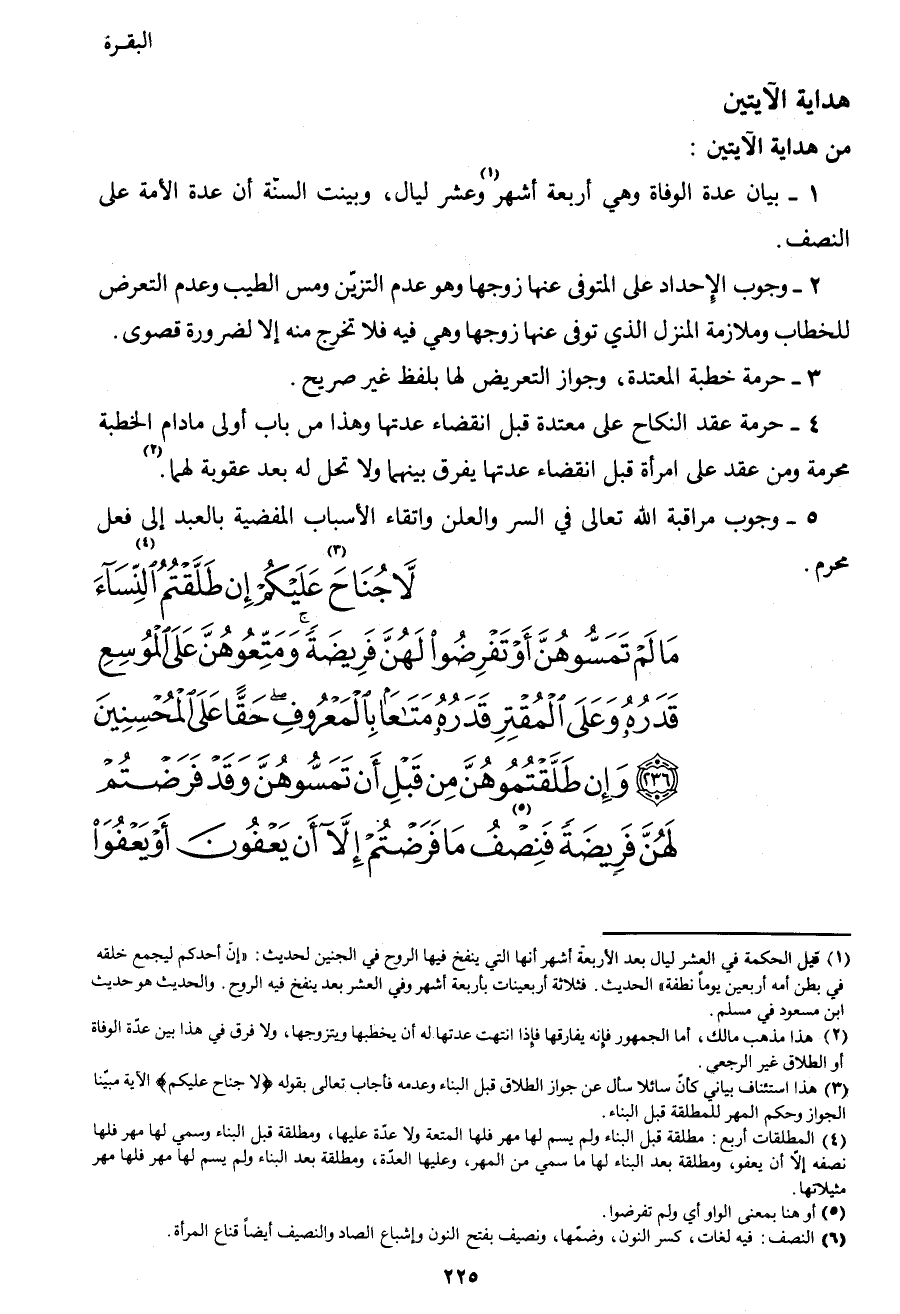 البقـرة
هداية الآيتين
من هداية الآيتين :
١ ـ بيان عدة الوفاة وهي أربعة أشهر(١) وعشر ليال، وبينت السنّة أن عدة الأمة على
النصف .
٢ ـ وجوب الإحداد على المتوفى عنها زوجها وهو عدم التزيّن ومس الطيب وعدم التعرض
للخطاب وملازمة المنزل الذي توفى عنها زوجها وهي فيه فلا تخرج منه إلا لضرورة قصوى .
٣ ـ حرمة خطبة المعتدة، وجواز التعريض لها بلفظ غير صريح .
٤ ـ حرمة عقد النكاح على معتدة قبل انقضاء عدتها وهذا من باب أولى مادام الخطبة
محرمة ومن عقد على امرأة قبل انقضاء عدتها يفرق بينهما ولا تحل له بعد عقوبة لهما .(٢)
٥ ـ وجوب مراقبة الله تعالى في السر والعلن واتقاء الأسباب المفضية بالعبد إلى فعل
محرم .
لَّا جُنَاحَ(٣) عَلَيْكُمْ إِن طَلَّقْتُمُ(٤) ٱلنِّسَآءَ
مَا لَمْ تَمَسُّوهُنَّ أَوْ تَفْرِضُوا۟ لَهُنَّ فَرِيضَةً ۚ وَمَتِّعُوهُنَّ عَلَى ٱلْمُوسِعِ
قَدَرُهُۥ وَعَلَى ٱلْمُقْتِرِ قَدَرُهُۥ مَتَـٰعًۢا بِٱلْمَعْرُوفِ ۖ حَقًّا عَلَى ٱلْمُحْسِنِينَ
﴿٢٣٦﴾ وَإِن طَلَّقْتُمُوهُنَّ مِن قَبْلِ أَن تَمَسُّوهُنَّ وَقَدْ فَرَضْتُمْ
لَهُنَّ فَرِيضَةً فَنِصْفُ(٥) مَا فَرَضْتُمْ إِلَّآ أَن يَعْفُونَ أَوْ يَعْفُوَا۟
(١) قيل الحكمة في العشر ليال بعد الأربعة أشهر أنها التي ينفخ فيها الروح في الجنين لحديث : «إنّ أحدكم ليجمع خلقه
في بطن أمه أربعين يوماً نطفة» الحديث . فثلاثة أربعينات بأربعة أشهر وفي العشر بعد ينفخ فيه الروح . والحديث هو حديث
ابن مسعود في مسلم .
(٢) هذا مذهب مالك، أما الجمهور فإنه يفارقها فإذا انتهت عدتها له أن يخطبها ويتزوجها، ولا فرق في هذا بين عدّة الوفاة
أو الطلاق غير الرجعي .
(٣) هذا استئناف بياني كأنّ سائلا سأل عن جواز الطلاق قبل البناء وعدمه فأجاب تعالى بقوله ﴿لا جناح عليكم﴾ الآية مبيّنا
الجواز وحكم المهر للمطلقة قبل البناء .
(٤) المطلقات أربع : مطلقة قبل البناء ولم يسم لها مهر فلها المتعة ولا عدّة عليها، ومطلقة قبل البناء وسمي لها مهر فلها
نصفه إلّا أن يعفو، ومطلقة بعد البناء لها ما سمي من المهر، وعليها العدّة، ومطلقة بعد البناء ولم يسم لها مهر فلها مهر
مثيلاتها .
(٥) أو هنا بمعنى الواو أي ولم تفرضوا .
(٦) النصف : فيه لغات، كسر النون، وضمّها، ونصيف بفتح النون وإشباع الصاد والنصيف أيضاً قناع المرأة .
٢٢٥